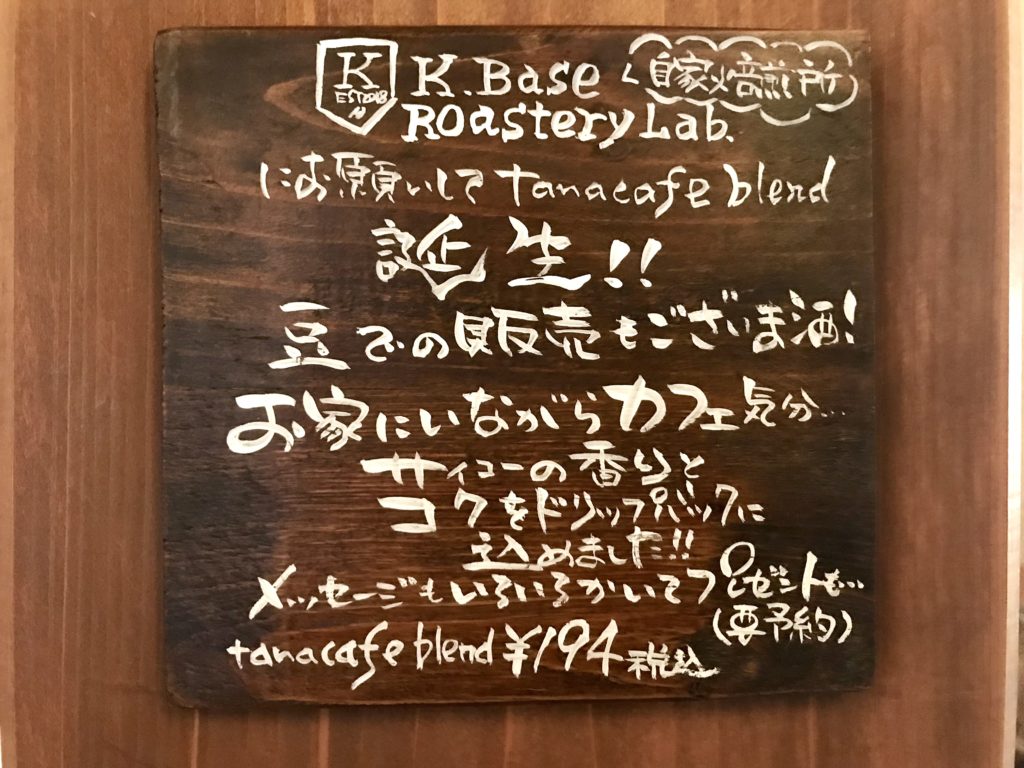 K
EST2018
N
K.Base 自家焙煎所
Roastery Lab.
にお願いして tanacafe blend
誕生!!
豆での販売もございま酒!
お家にいながらカフェ気分…
サイコーの香りと
コクをドリップバックに
込めました!!
メッセージもいろいろかいてプレゼントも…
(要予約)
tanacafe blend ¥194 税込